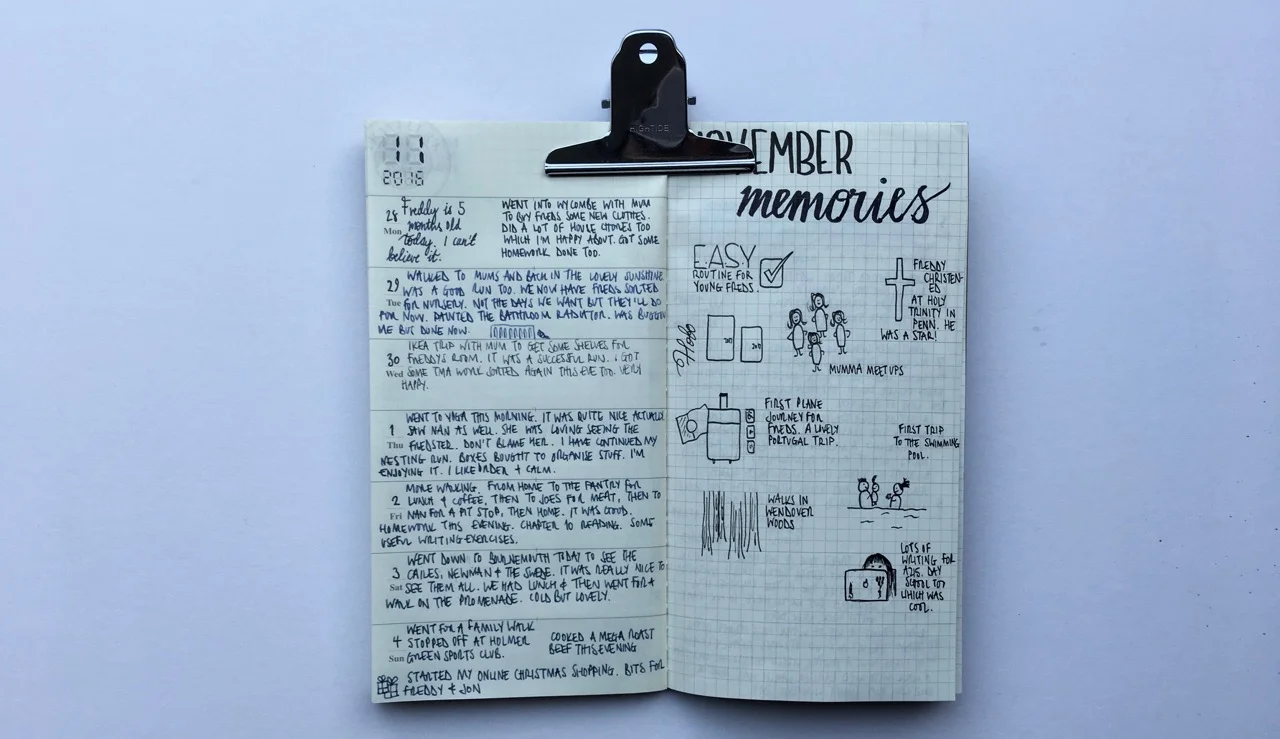 HIGHTIDE
11
2018
28
Mon
Freddy is 5
months old
today. I can't
believe it.
WENT INTO WYCOMBE WITH MUM
TO BUY FREDS SOME NEW CLOTHES.
DID A LOT OF HOUSE CHORES TOO
WHICH I'M HAPPY ABOUT. GOT SOME
HOMEWORK DONE TOO.
29
Tue
WALKED TO MUMS AND BACK IN THE LOVELY SUNSHINE
WAS A GOOD RUN TOO. WE NOW HAVE FREDS SORTED
FOR NURSERY. NOT THE DAYS WE WANT BUT THEY'LL DO
FOR NOW. PAINTED THE BATHROOM RADIATOR. WAS
ME BUT DONE NOW.
30
Wed
IKEA TRIP WITH MUM TO GET SOME SHELVES FOR
FREDDYS ROOM. IT WAS A SUCCESSFUL RUN. I GOT
SOME TMA WORK SORTED AGAIN THIS EVE TOO. VERY
HAPPY.
1
Thu
WENT TO YOGA THIS MORNING. IT WAS QUITE NICE ACTUALLY
SAW NAN AS WELL. SHE WAS LOVING SEEING THE
FREDSTER. DON'T BLAME HER. I HAVE CONTINUED MY
NESTING RUN. BOXES BOUGHT TO ORGANISE STUFF. I'M
ENJOYING IT. I LIKE ORDER + CALM.
2
Fri
MORE WALKING. FROM HOME TO THE PANTRY FOR
LUNCH + COFFEE, THEN TO JOES FOR MEAT, THEN TO
NAN FOR A PIT STOP, THEN HOME. IT WAS GOOD.
HOMEWORK THIS EVENING. CHAPTER 10 READING. SOME
USEFUL WRITING EXERCISES.
3
Sat
WENT DOWN TO BOURNEMOUTH TODAY TO SEE THE
NEWMAN + THE SWEDE. IT WAS REALLY NICE TO
SEE THEM ALL. WE HAD LUNCH + THEN WENT FOR A
WALK ON THE PROMENADE. COLD BUT LOVELY.
4
Sun
WENT FOR A FAMILY WALK
STOPPED OFF AT HOLMER
GREEN SPORTS CLUB.
COOKED A MEGA ROAST
BEEF THIS EVENING
STARTED MY ONLINE CHRISTMAS SHOPPING. BITS FOR
FREDDY + JON
NOVEMBER
memories
EASY
ROUTINE FOR
YOUNG FREDS.
FREDDY
CHRISTEN-
ED
AT HOLY
TRINITY IN
PENN. HE
WAS A STAR!
MUMMA MEETUPS
FIRST PLANE
JOURNEY FOR
FREDS. A LIVELY
PORTUGAL TRIP.
FIRST TRIP
TO THE SWIMMING
POOL.
WALKS IN
WENDOVER
WOODS
LOTS OF
WRITING FOR
A215. DAY
SCHOOL TOO
WHICH WAS
COOL.